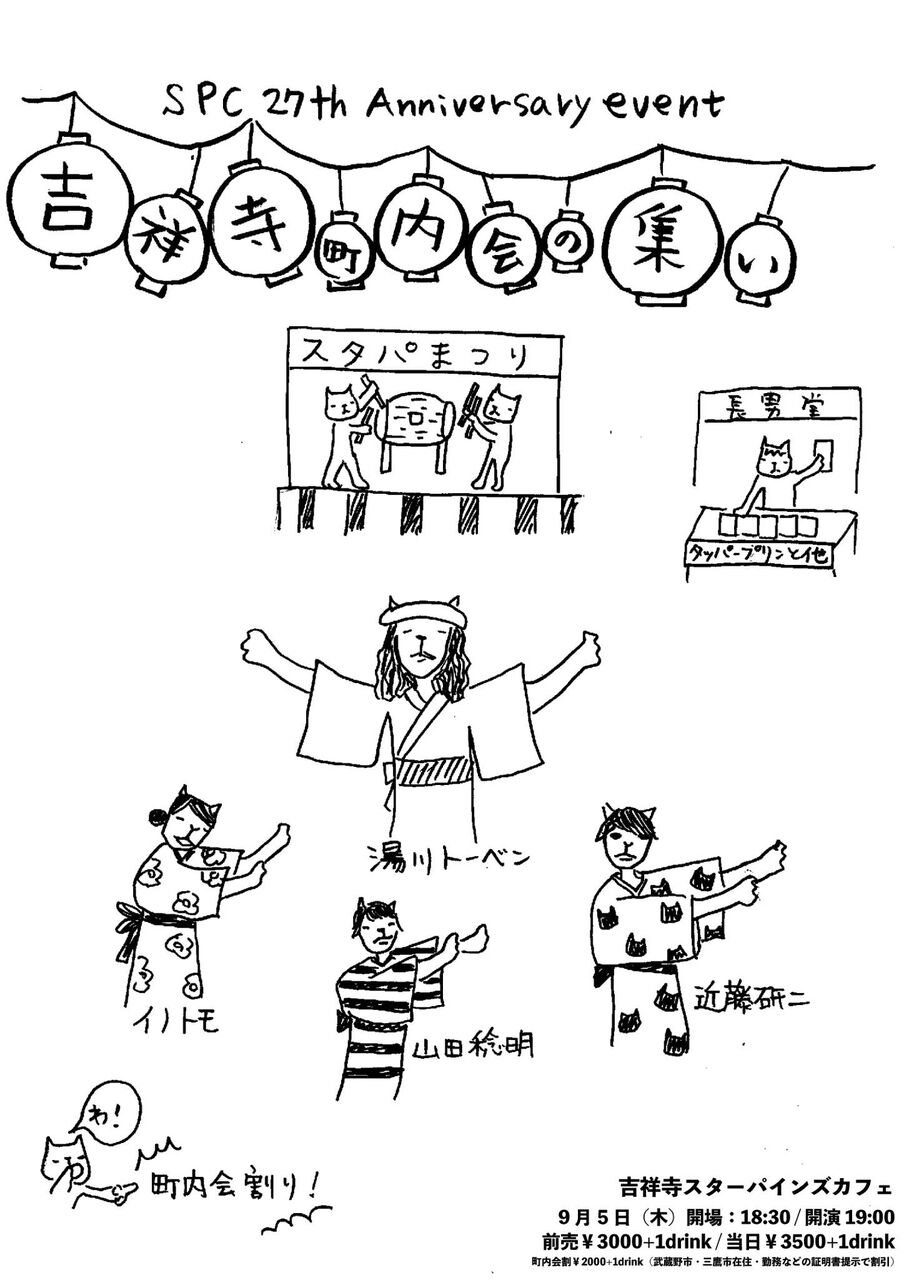 SPC 27th Anniversary event
吉祥寺町内会の集い
スタパまつり
長男堂
タッパープリンと他
湯川トーベン
イノトモ
山田稔明
近藤研二
わ!
町内会割り!
吉祥寺スターパインズカフェ
9月5日（木）開場：18:30 / 開演 19:00
前売¥3000+1drink / 当日¥3500+1drink
町内会割¥2000+1drink（武蔵野市・三鷹市在住・勤務などの証明書提示で割引）